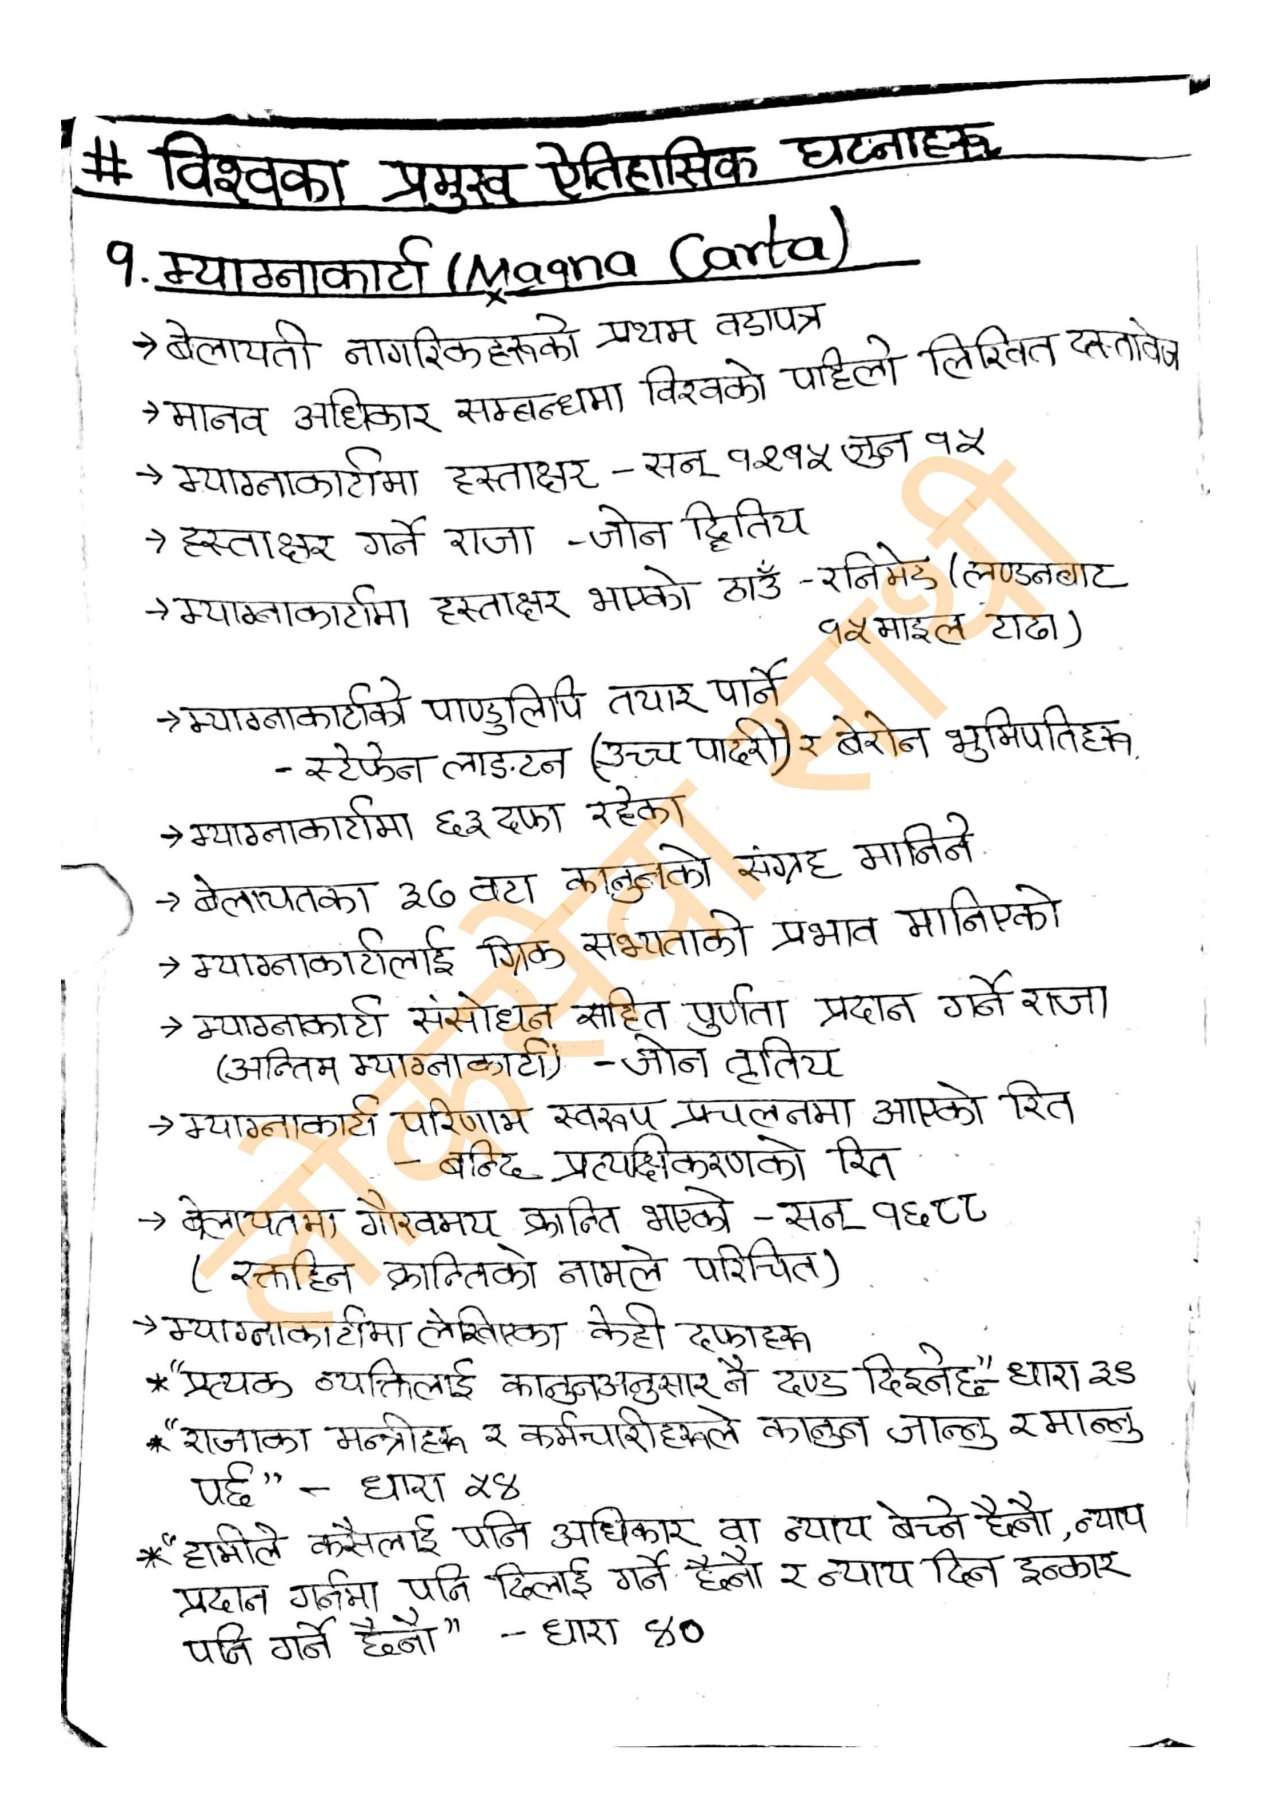 # विश्वका प्रमुख ऐतिहासिक घटनाहरू
१. म्याग्नाकार्टा (Magna Carta)
→ बेलायती नागरिकहरूको प्रथम वडापत्र
→ मानव अधिकार सम्बन्धमा विश्वको पहिलो लिखित दस्तावेज
→ म्याग्नाकार्टामा हस्ताक्षर – सन् १२१५ जुन १५
→ हस्ताक्षर गर्ने राजा - जोन द्वितिय
→ म्याग्नाकार्टामा हस्ताक्षर भएको ठाउँ - रनिमेड (लण्डनबाट
१५ माइल टाढा)
→ म्याग्नाकार्टाको पाण्डुलिपि तयार पार्ने
- स्टेफेन लाङटन (उच्च पादरी) र बेरोन भुमिपतिहरू.
→ म्याग्नाकार्टामा ६३ दफा रहेका
→ बेलायतका ३७ वटा कानुनको संग्रह मानिने
→ म्याग्नाकार्टालाई ग्रिक सभ्यताको प्रभाव मानिएको
→ म्याग्नाकार्टा संसोधन सहित पुर्णता प्रदान गर्ने राजा
(अन्तिम म्याग्नाकार्टा) - जोन तृतिय
→ म्याग्नाकार्टा परिणाम स्वरूप प्रचलनमा आएको रित
- बन्दि प्रत्यक्षिकरणको रित
→ बेलायतमा गौरवमय क्रान्ति भएको - सन् १६८८
( रक्तहिन क्रान्तिको नामले परिचित)
→ म्याग्नाकार्टामा लेखिएका केही दफाहरू
* "प्रत्यक व्यक्तिलाई कानुनअनुसार नै दण्ड दिइनेछ" - धारा ३९
* "राजाका मन्त्रीहरू र कर्मचारीहरूले कानुन जान्नु र मान्नु
पर्छ" – धारा ५४
* "हामीले कसैलाई पनि अधिकार वा न्याय बेच्ने छैनौ, न्याय
प्रदान गर्नमा पनि ढिलाई गर्ने छैनौ र न्याय दिन इन्कार
पनि गर्ने छैनौ" - धारा ४०
लोकसेवा साथी